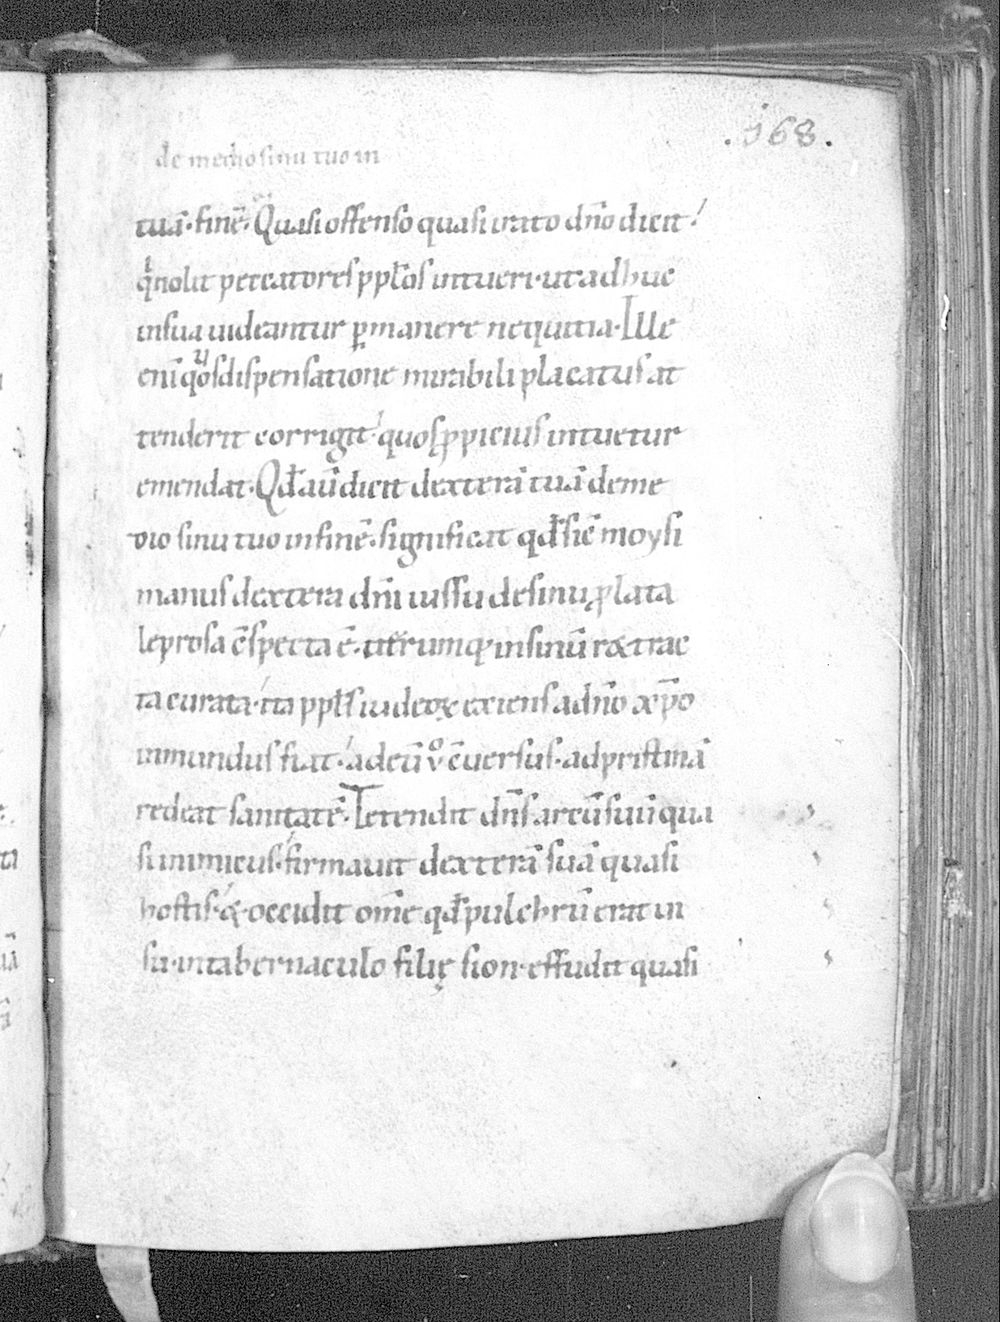 .168.
de medio sinu tuo in
tuā· finē· Quasi offenso quasi irato dn̄o dicit·
qͥ nolit peccatores ppl̄os intueri· ut adhuc
in sua uideantur ꝑmanere nequitia· Ille
eni᷈ qͦs dispensatione mirabili placatus at
tenderit corrigit· quos ꝓpicius intuetur
emendat· Qd̄ aū dicit dexterā tuā de me
dio sinu tuo in finē· significat qd̄ sic̄ moysi
manus dextera dn̄i iussu de sinu ꝓlata
leprosa c̄specta ē· iterumq; in sinū r&trac
ta curata· ita ppl̄s iudeoꝝ exiens a dn̄o xp̄o
inmundus fiat· ad eū v̊ c̄uersus· ad pristinā
redeat sanitatē· Tetendit dn̄s arcū suū qua
si inimicus· firmauit dexterā suā quasi
hostis· & occidit om̄e qd̄ pulchrū erat ui
su· in tabernaculo filię sion· effudit quasi